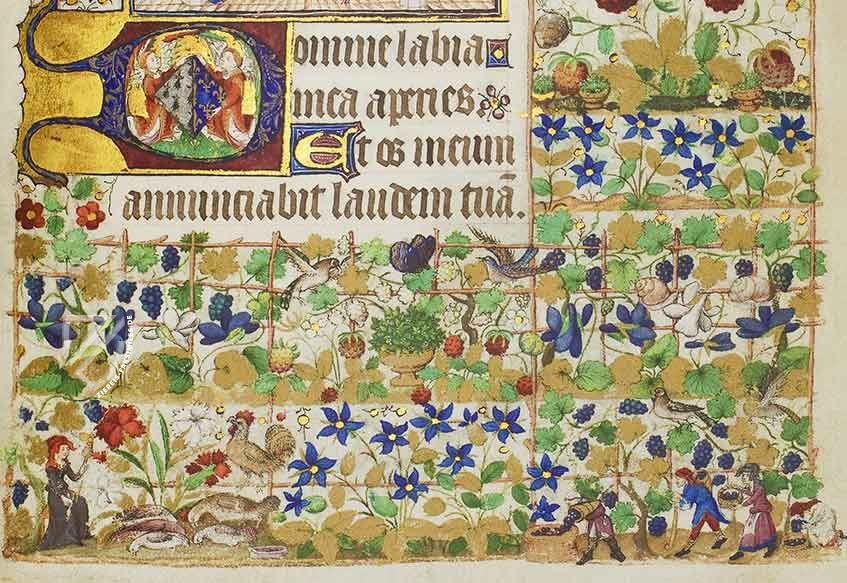 Domine labia
mea aperies
Et os meum
annunciabit laudem tuã.